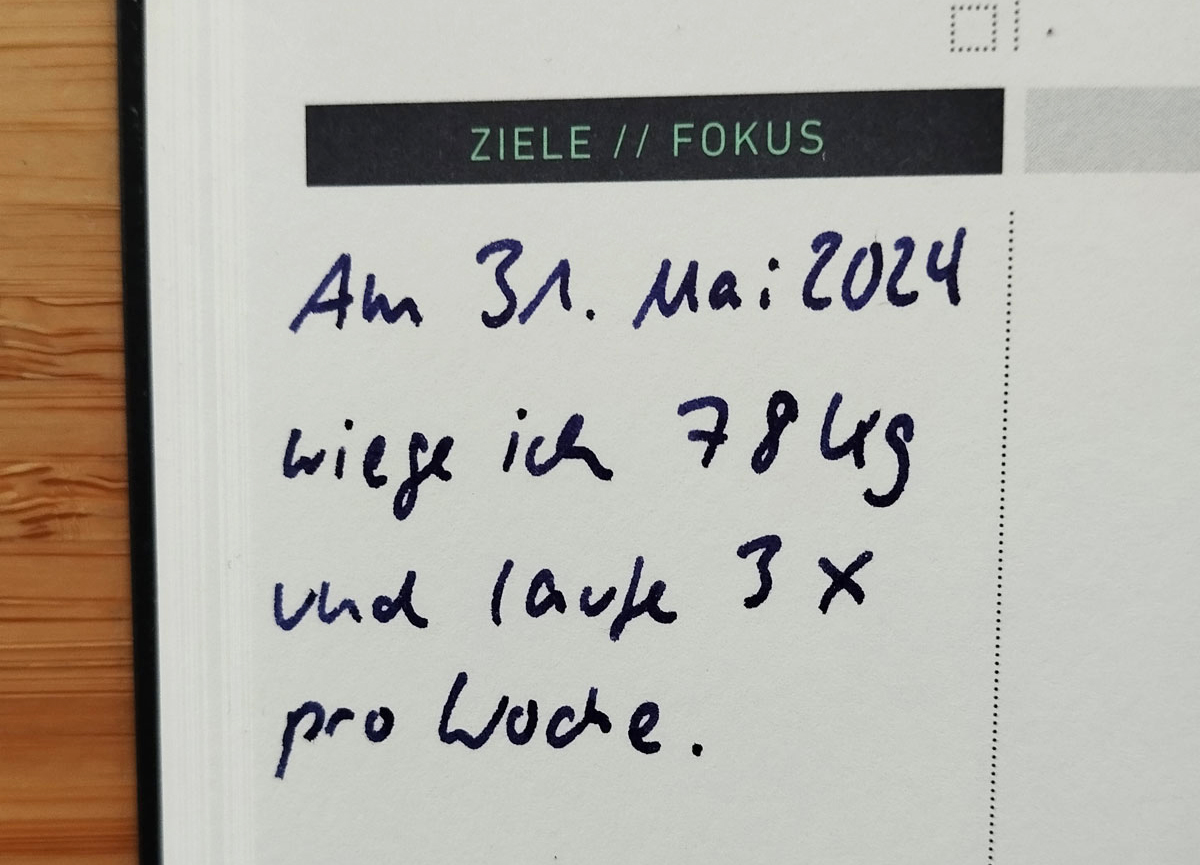 ZIELE // FOKUS
Am 31. Mai 2024
wiege ich 78 kg
und laufe 3 x
pro Woche.